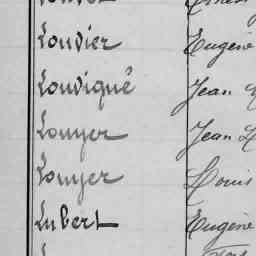 Louvier Eugène
Louvigué Jean
Louyer Jean
Louyer Louis
Lubert Eugène